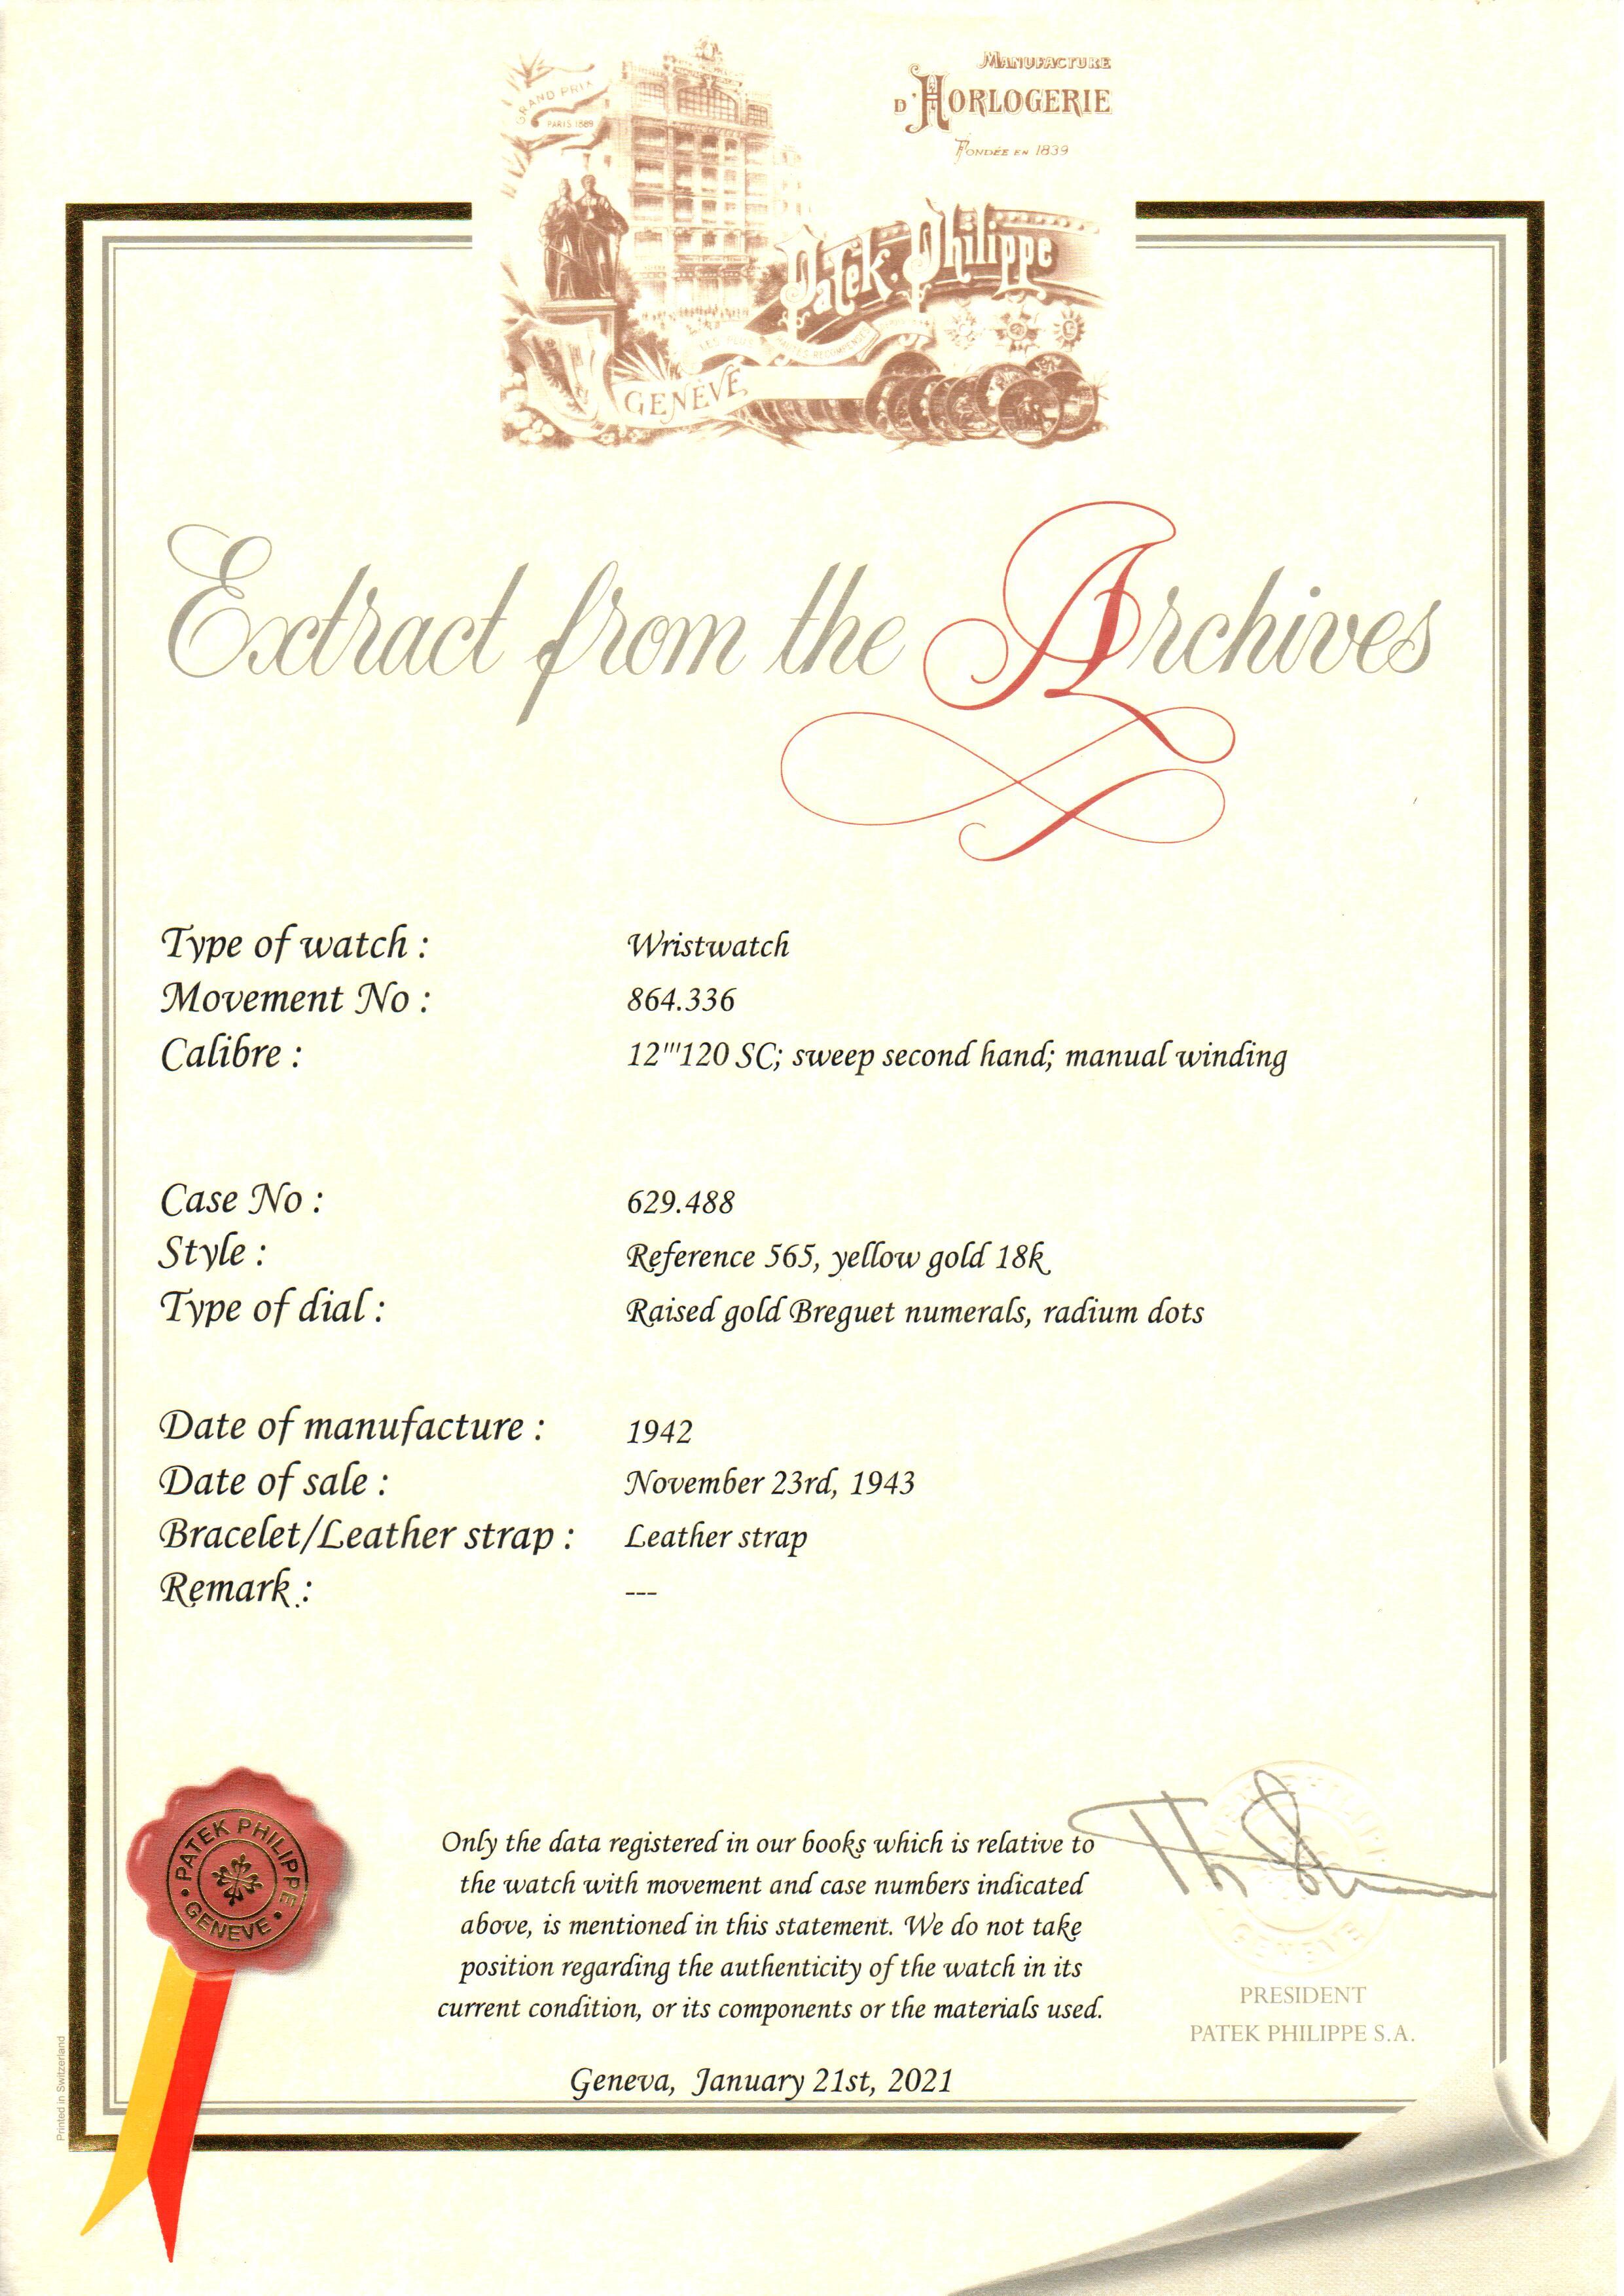 GRAND PRIX
PARIS 1889
MANUFACTURE
D'HORLOGERIE
FONDÉE EN 1839
Patek Philippe
LES PLUS HAUTES RECOMPENSES
GENÈVE
Extract from the Archives
Type of watch : Wristwatch
Movement No : 864.336
Calibre : 12'''120 SC; sweep second hand; manual winding
Case No : 629.488
Style : Reference 565, yellow gold 18k
Type of dial : Raised gold Breguet numerals, radium dots
Date of manufacture : 1942
Date of sale : November 23rd, 1943
Bracelet/Leather strap : Leather strap
Remark : ---
PATEK PHILIPPE
GENEVE
Only the data registered in our books which is relative to
the watch with movement and case numbers indicated
above, is mentioned in this statement. We do not take
position regarding the authenticity of the watch in its
current condition, or its components or the materials used.
Geneva, January 21st, 2021
PRESIDENT
PATEK PHILIPPE S.A.
Printed in Switzerland